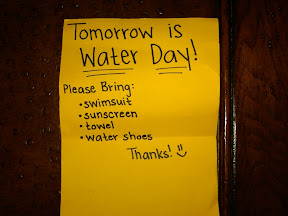 Tomorrow is
Water Day!
Please Bring:
• swimsuit
• sunscreen
• towel
• water shoes
Thanks! :)